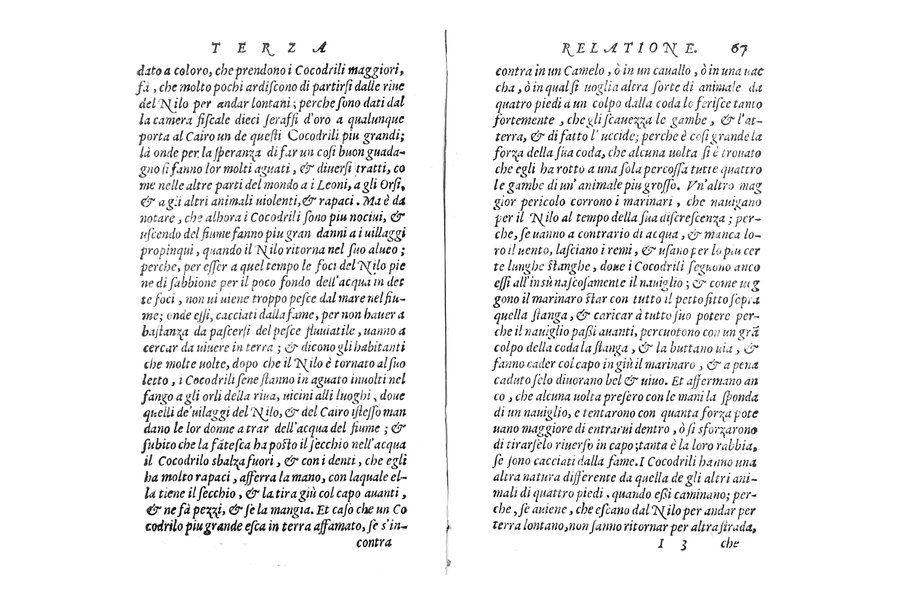 TERZA
dato a coloro, che prendono i Cocodrili maggiori,
fà, che molto pochi ardiſcono di partirſi dalle riue
del Nilo per andar lontani; perche ſono dati dal
la camera fiſcale dieci ſeraffi d'oro a qualunque
porta al Cairo un de queſti Cocodrili piu grandi;
là onde per la ſperanza di far un coſi buon guada-
gno ſi fanno lor molti aguati, & diuerſi tratti, co
me nelle altre parti del mondo a i Leoni, a gli Orſi,
& a gli altri animali uiolenti, & rapaci. Ma è da
notare, che alhora i Cocodrili ſono piu nociui, &
uſcendo del fiume fanno piu gran danni a i uillaggi
propinqui, quando il Nilo ritorna nel ſuo alueo;
perche, per eſſer a quel tempo le foci del Nilo pie
ne di ſabbione per il poco fondo dell'acqua in det
te foci, non ui uiene troppo peſce dal mare nel fiu-
me; onde eſſi, cacciati dalla fame, per non hauer a
baſtanza da paſcerſi del peſce fluuiatile, uanno a
cercar da uiuere in terra; & dicono gli habitanti
che molte uolte, dopo che il Nilo è tornato al ſuo
letto, i Cocodrili ſene ſtanno in aguato inuolti nel
fango a gli orli della riua, uicini alli luoghi, doue
quelli de'uilaggi del Nilo, & del Cairo iſteſſo man
dano le lor donne a trar dell'acqua del fiume; &
ſubito che la fāteſca ha poſto il ſecchio nell'acqua
il Cocodrilo sbalza fuori, & con i denti, che egli
ha molto rapaci, afferra la mano, con laquale el-
la tiene il ſecchio, & la tira giù col capo auanti,
& ne fà pezzi, & ſe la mangia. Et caſo che un Co
codrilo piu grande eſca in terra affamato, ſe s'in-
contra
RELATIONE. 67
contra in un Camelo, ò in un cauallo, ò in una uac
cha, ò in qual ſi uoglia altra ſorte di animale da
quattro piedi a un colpo dalla coda lo feriſce tanto
fortemente, che gli ſcauezza le gambe, & l'at-
terra, & di fatto l'uccide; perche è coſi grande la
forza della ſua coda, che alcuna uolta ſi è trouato
che egli ha rotto a una ſola percoſſa tutte quattro
le gambe di un'animale piu groſſo. Vn'altro mag
gior pericolo corrono i marinari, che nauigano
per il Nilo al tempo della ſua diſcreſcenza; per-
che, ſe uanno a contrario di acqua, & manca lo-
ro il uento, laſciano i remi, & uſano per lo piu cer
te lunghe ſtanghe, doue i Cocodrili ſeguono anco
eſſi all'inſù naſcoſamente il nauiglio; & come ueg
gono il marinaro ſtar con tutto il petto fitto ſopra
quella ſtanga, & caricar à tutto ſuo potere per-
che il nauiglio paſſi auanti, percuotono con un grā
colpo della coda la ſtanga, & la buttano uia, &
fanno cader col capo in giù il marinaro, & a pena
caduto ſelo diuorano bel & uiuo. Et affermano an
co, che alcuna uolta preſero con le mani la ſponda
di un nauiglio, e tentarono con quanta forza pote
uano maggiore di entrarui dentro, ò ſi sforzarono
di tirarſelo riuerſo in capo; tanta è la loro rabbia,
ſe ſono cacciati dalla fame. I Cocodrili hanno una
altra natura differente da quella de gli altri ani-
mali di quattro piedi, quando eſſi caminano; per-
che, ſe auiene, che eſcano dal Nilo per andar per
terra lontano, non ſanno ritornar per altra ſtrada,
I 3 che